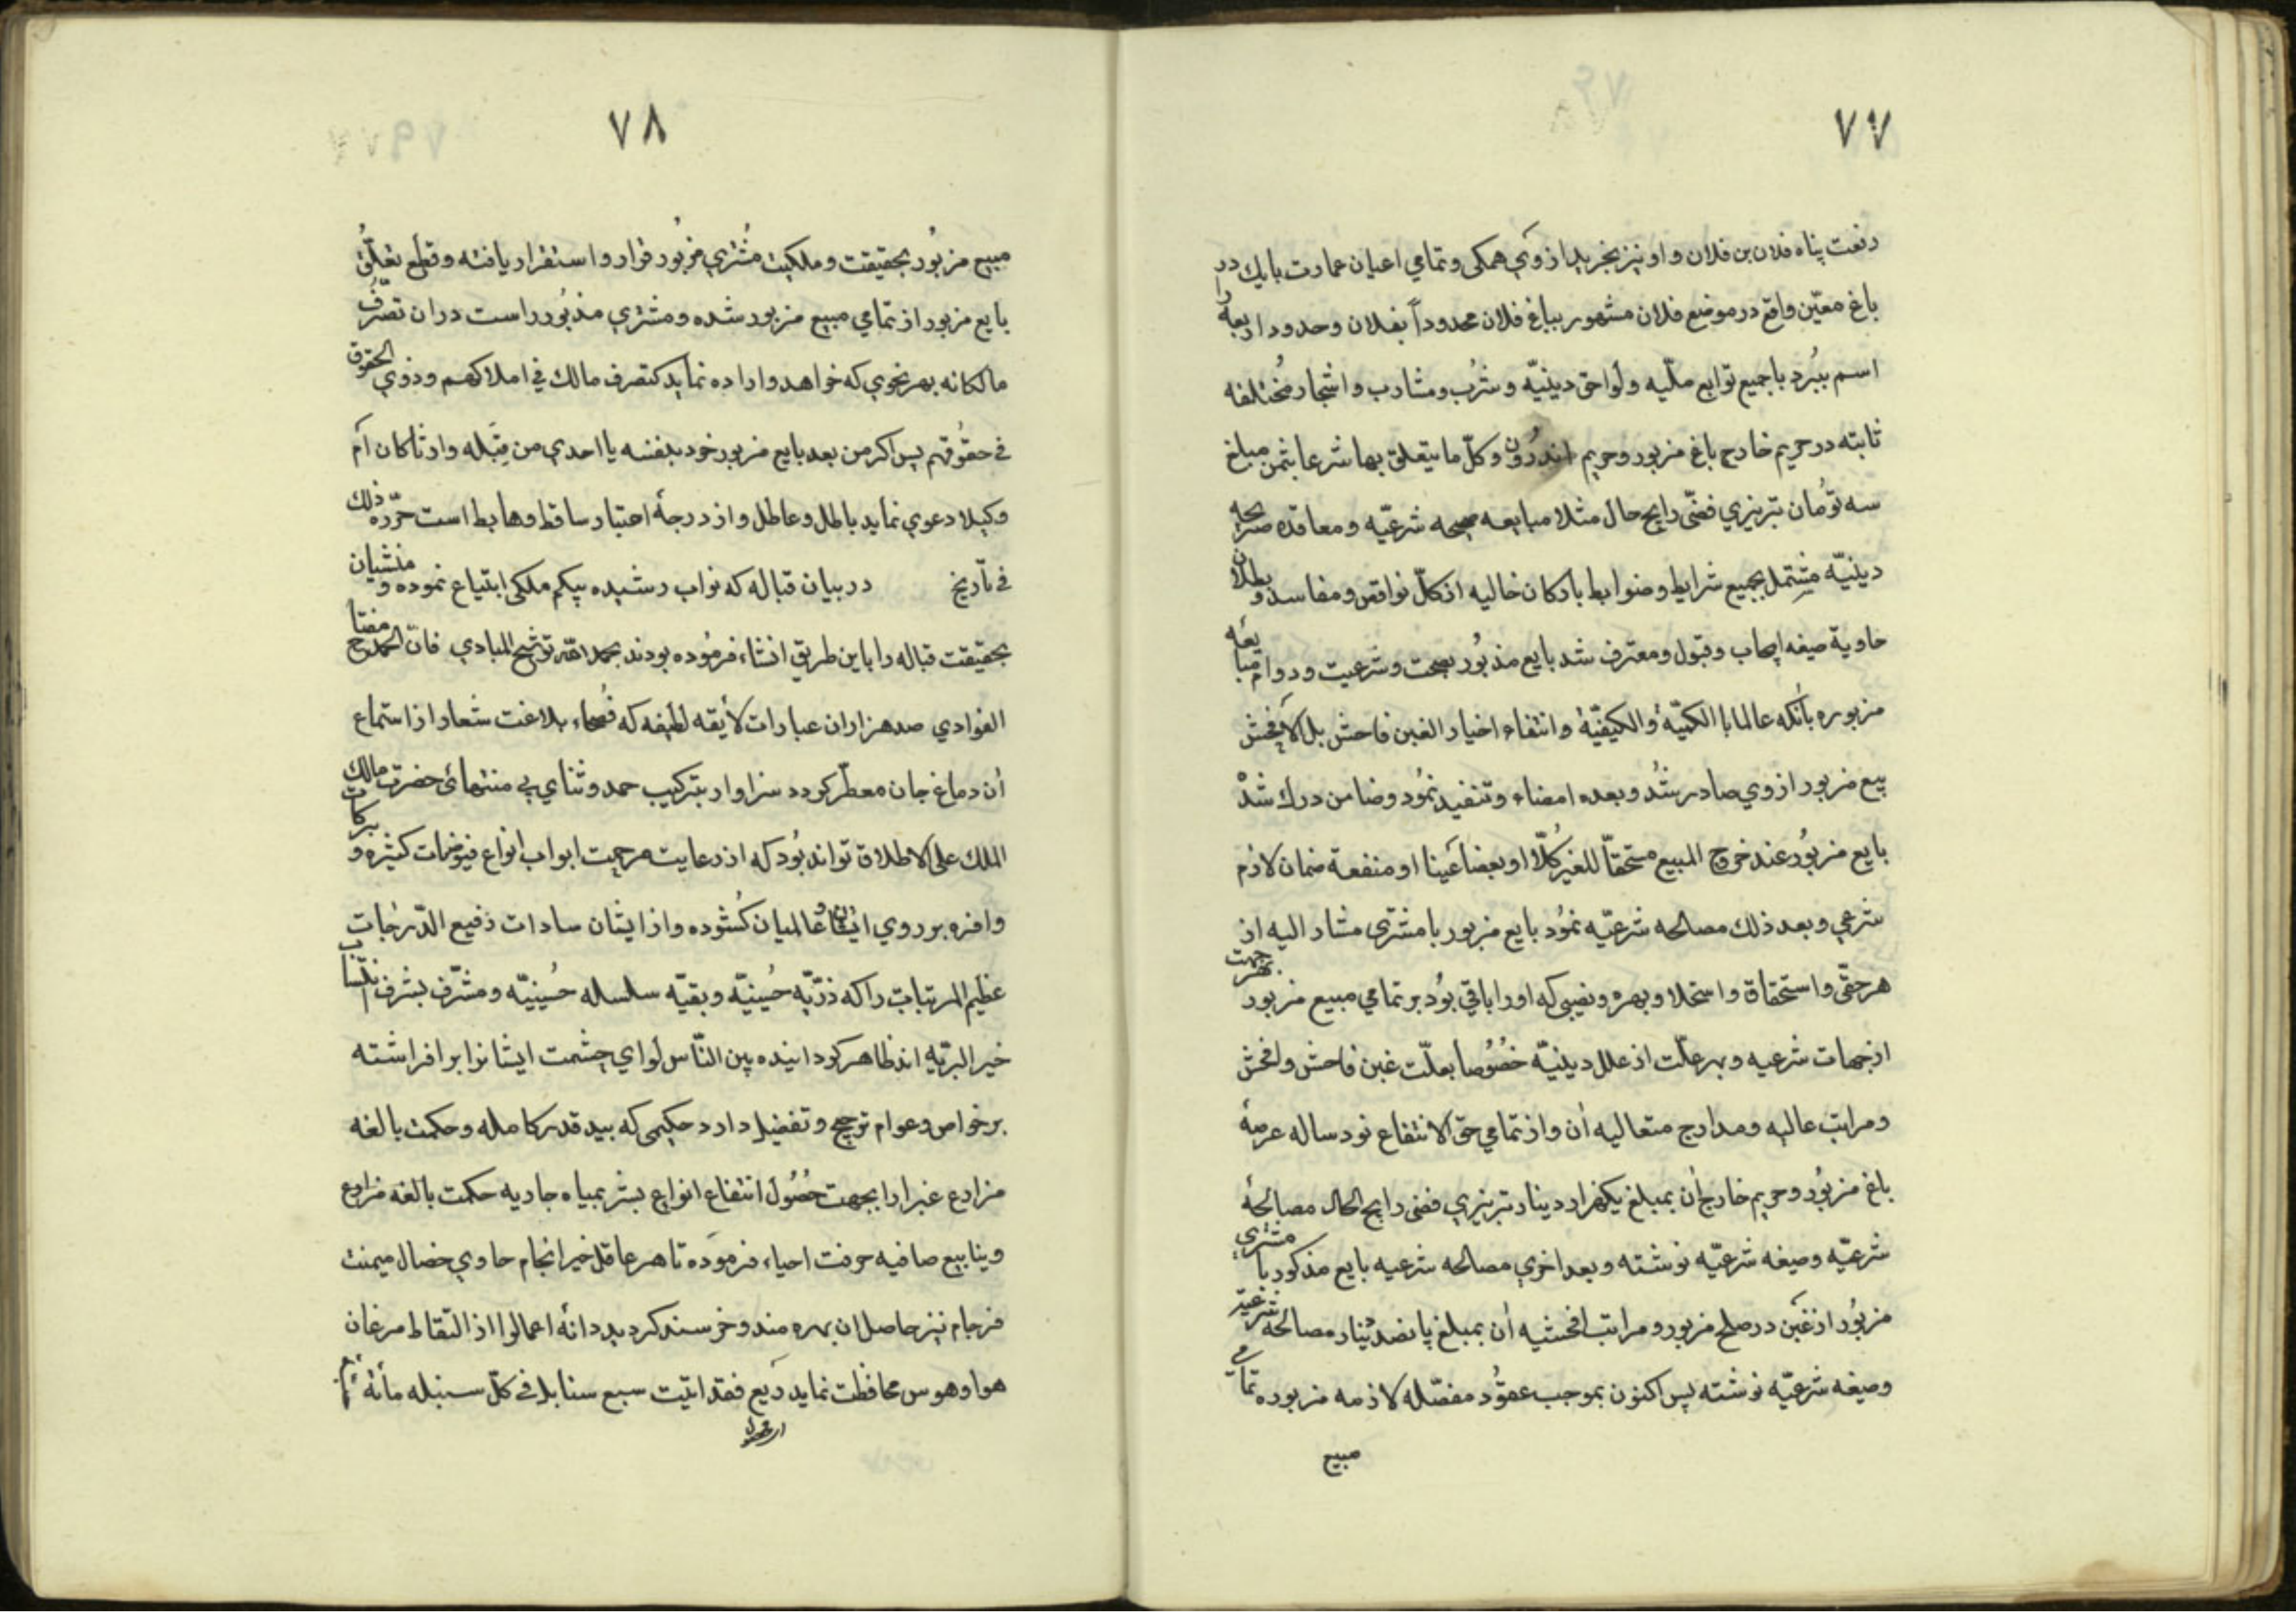 ۷۷
رفعت پناه فلان بن فلان و او نیز بخرید از وَی همکی و تمامی اعیان عمارت بابک در
باغ معیّن واقع در موضع فلان مشهور بباغ فلان محدوداً بفلان وحدود اربعه را
اسم ببُرد با جمیع توابع ملّیه ولواحق دینیّه و شرُب و مشارب و اشجار مُختلفه
ثابته در حریم خارج باغ مزبور وحریم اندرُون وکلّ ما یتعلق بها شرعا بثمن مبلغ
سه تُومان تبریزی فضّی رایج حال مثلا مبایعه صحیحه شرعیّه ومعاقده صریحه
دینیّه مشتمل بجمیع شرایط وضوابط بارکان خالیه از کلّ نواقص و مفاسد و بطلان
حاویة صیغه ایجاب وقبول ومعترف شد بایع مذبُور بصحت وشرعیت ودوام مبایعه
مزبوره بآنکه عالما با الکمیّة والکیفیّة وانتفاء اخیار الغبن فاحش بل الافحش
بیع مزبور از وی صادر شُد وبعده امضاء وتنفیذ نمُود وضامن درک شد
بایع مزبُور عند خروج المبیع مستحقاً للغیر کُلّا او بعضاً عَینا او منفعة ضمان لازم
شرعی وبعد ذلک مصالحه شرعیّه نمُود بایع مزبور با مشتری مشار الیه از
هر حقّی واستحقاق و استحلا وبهره ونصیبی که اورا باقی بوُد بر تمامی مبیع مزبور بهر جهت
از جهات شرعیه وبهر علّت از علل دینیّه خصُوُصا بعلّت غبن فاحش وافحش
ومراتب عالیه ومدارج متعالیه اُن واز تمامی حق الانتفاع نود ساله عرصهٔ
باغ مزبُور وحریم خارج اُن بمبلغ یکهزار دینار تبریزی فضی رایج الحال مصالحهٔ
شرعیّه وصیغه شرعیّه نوشته وبعد اخری مصالحه شرعیه بایع مذکور با مشتری
مزبُور از غبَن در صلح مزبور ومراتب افحشیه اُن بمبلغ پانصد دینار مصالحه شرعیّه
وصیغه شرعیّه نوشته پس اکنون بموجب عقوُد مفصّله لازمه مزبوره تمامی
مبیع
۷۸
مبیع مزبُور بحقیقت وملکیت مُشتری مزبُور قرار و استقرار یافته وقطع تعلّقُ
بایع مزبور از تمامی مبیع مزبور شده ومشتری مذبُور راست در ان تصرّفُ
مالکانه بهر نحوی که خواهد و اراده نماید کتصرف مالک فی املاکهم وذوی الحقوق
فی حقوُقهم پس اکر من بعد بایع مزبور خود بنفسه یا احدی من قِبَله وارثاً کان اَم
وکیلا دعوی نماید باطل وعاطل واز درجهٔ اعتبار ساقط وهابط است حرّره ذلک
فی تأریخ در بیان قباله که نواب رشیده بیکم ملکی ابتیاع نموده و منشیان
بحقیقت قباله را باین طریق انشاء فرمُوده بودند بحمد الله توشیح المبادی فانّ الحمد مفتاح
الفوادی صد هزاران عبارات لأیقه لطیفه که فُصحاء بلاغت شعار از استماع
اُن دماغ جان معطّر کردد سزاوار بترکیب حمد وثنای بی منتهائ حضرت مالک
الملک علی الاطلاق تواند بُود که از رعایت مرحمت ابواب انواع فیوضات کثیره و برکات
وافره بر روی ایشان و عالمیان کُشوده واز ایشان سادات رفیع الدّرجات
عظیم المرتبات را که ذرّیّه حُسینیّه وبقیّه سلسله حُسینیّه ومشرّف بشرف انتساب
خیر البریّه اند ظاهر کردانیده بین النّاس لوای حشمت ایشانرا بر افراشته
بر خواص وعوام ترجیح وتفضیل دارد حکیمی که بید قدرت کامله وحکمت بالغه
مزارع غبرا را بجهت حصُوُل انتفاع انواع بشر بمیاه جاریه حکمت بالغه مزارع
وینابیع صافیه حرفت احیاء فرموده تا هر عاقل خیر انجام حاوی خصال میمنت
فرجام نیز حاصل ان بهره مند وخرسند کردید دانهٔ اعمالرا از التقاط مرغان
هوا وهوس محافظت نماید رَیع فقد انبتت سبع سنابل فی کلّ سنبله مأئة